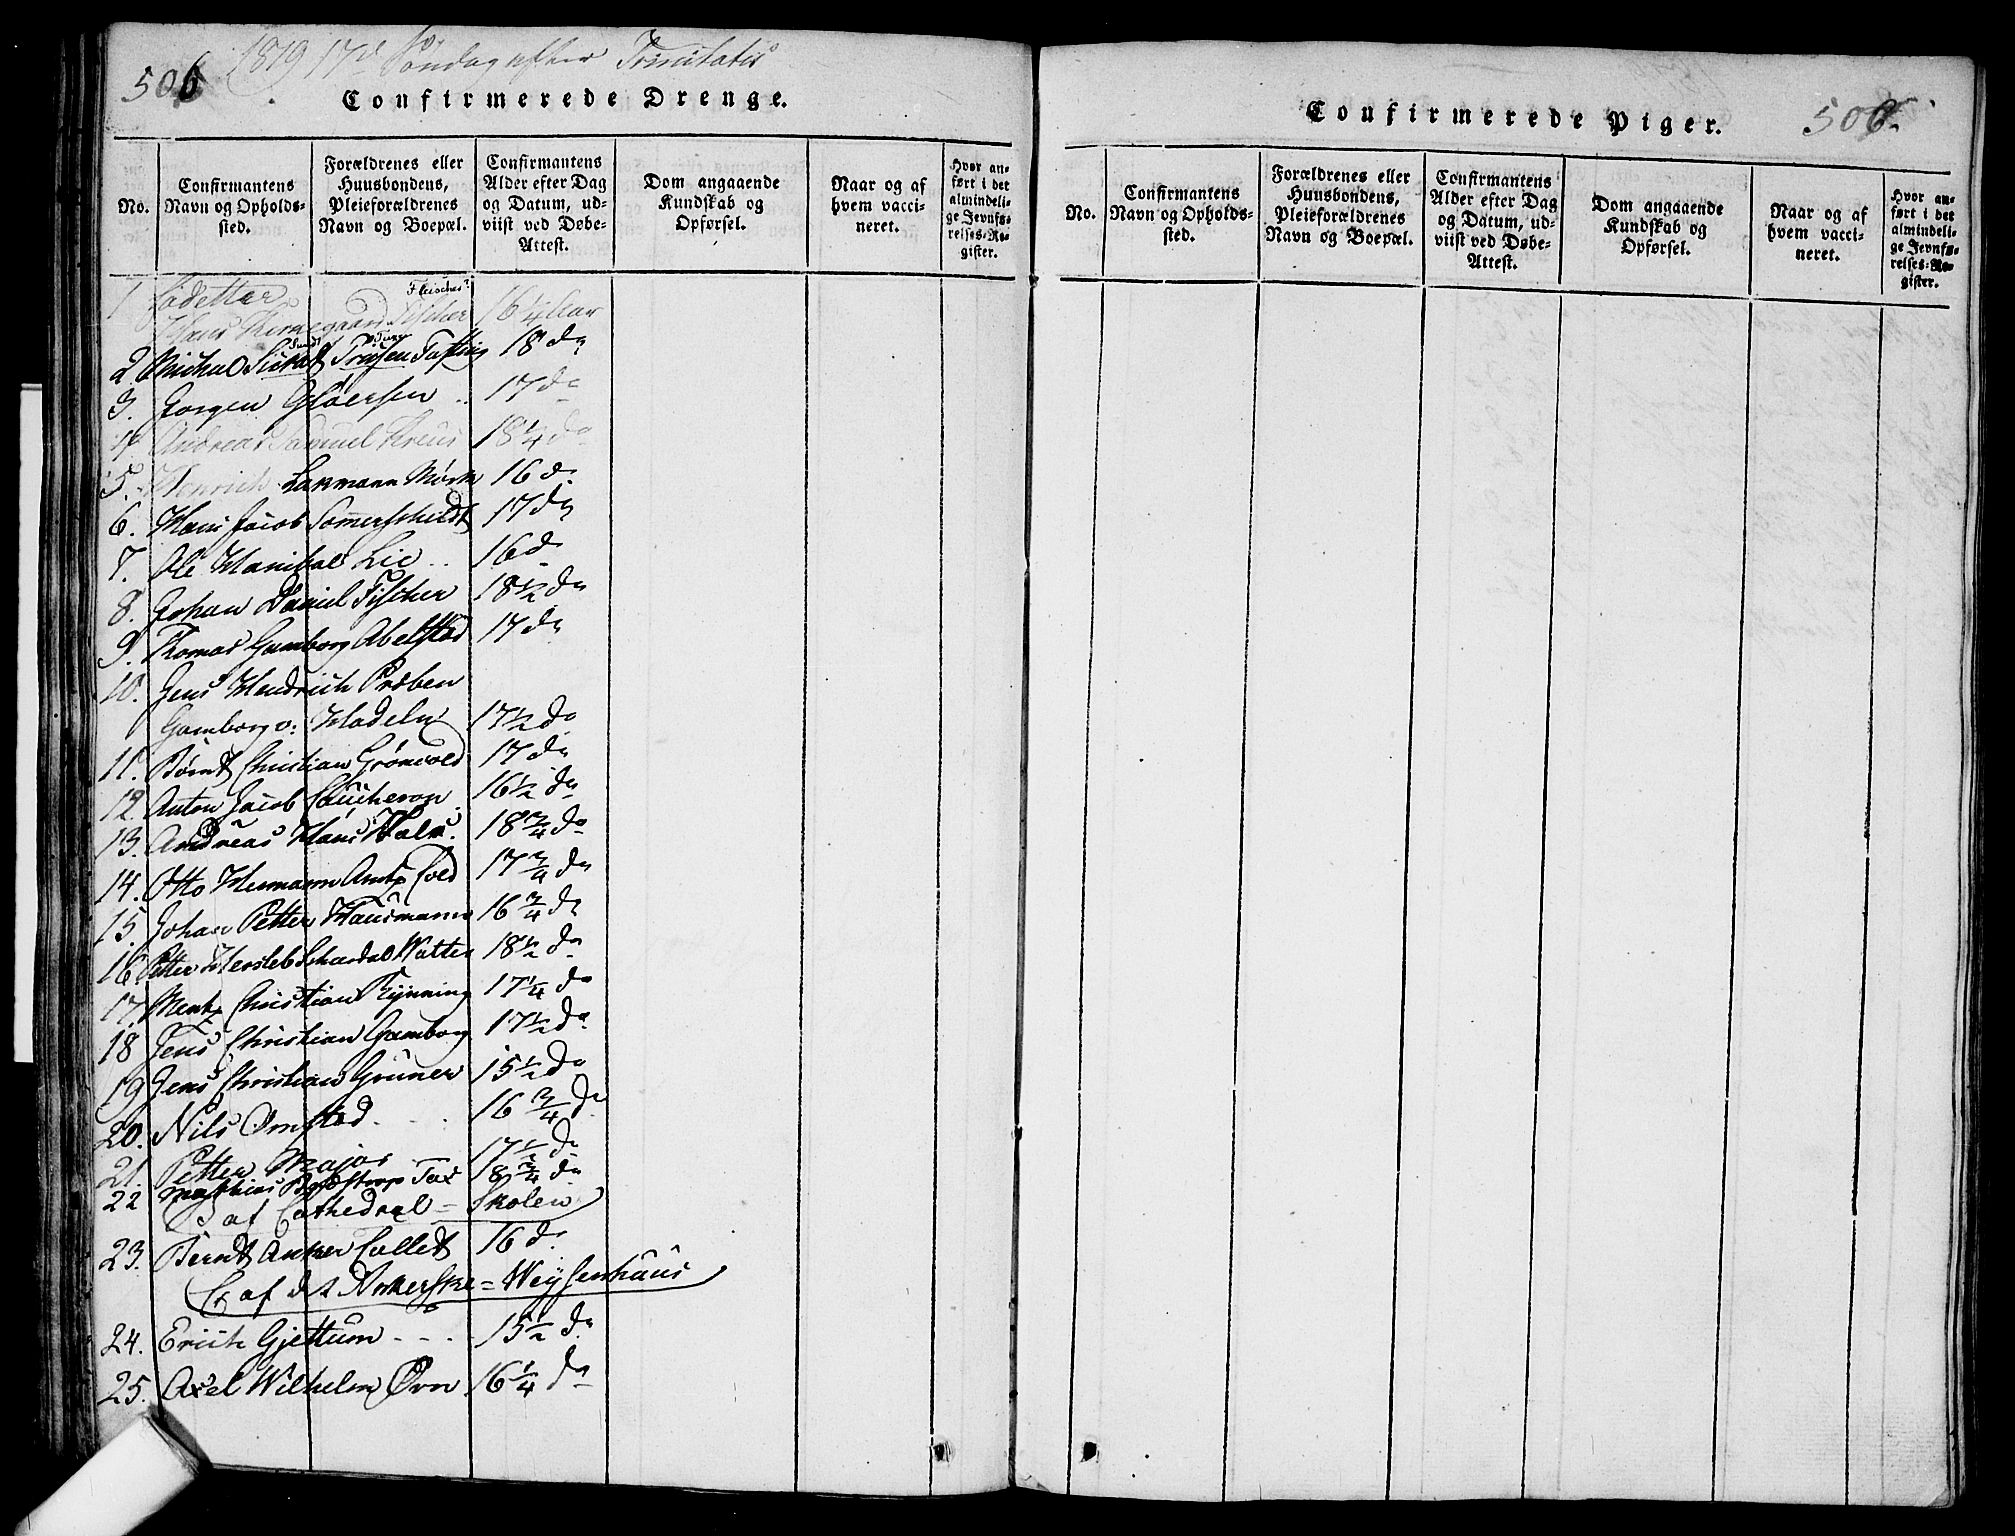 506 1819 17d Søndag efter Trinitatis
Confirmerede Drenge.
No.
Confirmantens Navn og Opholds-sted.
Forældrenes eller Huusbondens, Pleieforældrenes Navn og Boepæl.
Confirmantens Alder efter Dag og Datum, ud-viist ved Døbe-Attest.
Dom angaaende Kundskab og Opførsel.
Naar og af hvem vacci-neret.
Hvor an-ført i det almindeli-ge Jevnfø-relses-Re-gister.
1 Cadetter
Fleischer?
Hans Kirkegaard Fischer 16 1/4 Aar
2. Michael 18 do
3. Jørgen Gløersen .. 17 do
4 Andreas Samuel Kreus 18 1/4 do
5. Henrich Lakmann Mørk 16 do
6. Hans Jacob Somerschildt 17 do
7. Ole Hanibal Lie .. 16 do
8. Johan Daniel Fischer 18 1/2 do
9. Thomas Gamborg Abelsted 17 do
10. Jens Hendrich Preben
Gamborg v: Hadeln 17 1/2 do
11. Børnt Christian Grønvold 17 do
12. Anton Jacob Caucheron 16 1/2 do
13. Andreas Hans 18 3/4 do
14. Otto Hermann Antz Cold 17 3/4 do
15. Johan Petter Hausmann 16 3/4 do
16 Petter Hersleb Watter 18 1/2 do
17 Mentz Christian Rynning 17 1/4 do
18 Jens Christian Gamborg 17 1/2 do
19 Jens Christian Grüner 15 1/2 do
20. Nils Ørnsted . . . 16 3/4 do
21. Petter Major 17 1/2 do
22 Matthias Bonstrop Tax 18 3/4 do
B af Cathedral = Skolen
23. Bernt Anker Collet 16 do
C af det Ankerske = Weysenhaus
24. Erich Gjettum - - . 15 1/2 do
25. Axel Wilhelm Ørn 16 1/4 do
Confirmerede Piger. 506.
No.
Confirmantens Navn og Opholds-sted.
Forældrenes eller Huusbondens, Pleieforældrenes Navn og Boepæl.
Confirmantens Alder efter Dag og Datum, ud-viist ved Døbe-Attest.
Dom angaaende Kundskab og Opførsel.
Naar og af hvem vacci-neret.
Hvor an-ført i det almindeli-ge Jevnfø-relses-Re-gister.